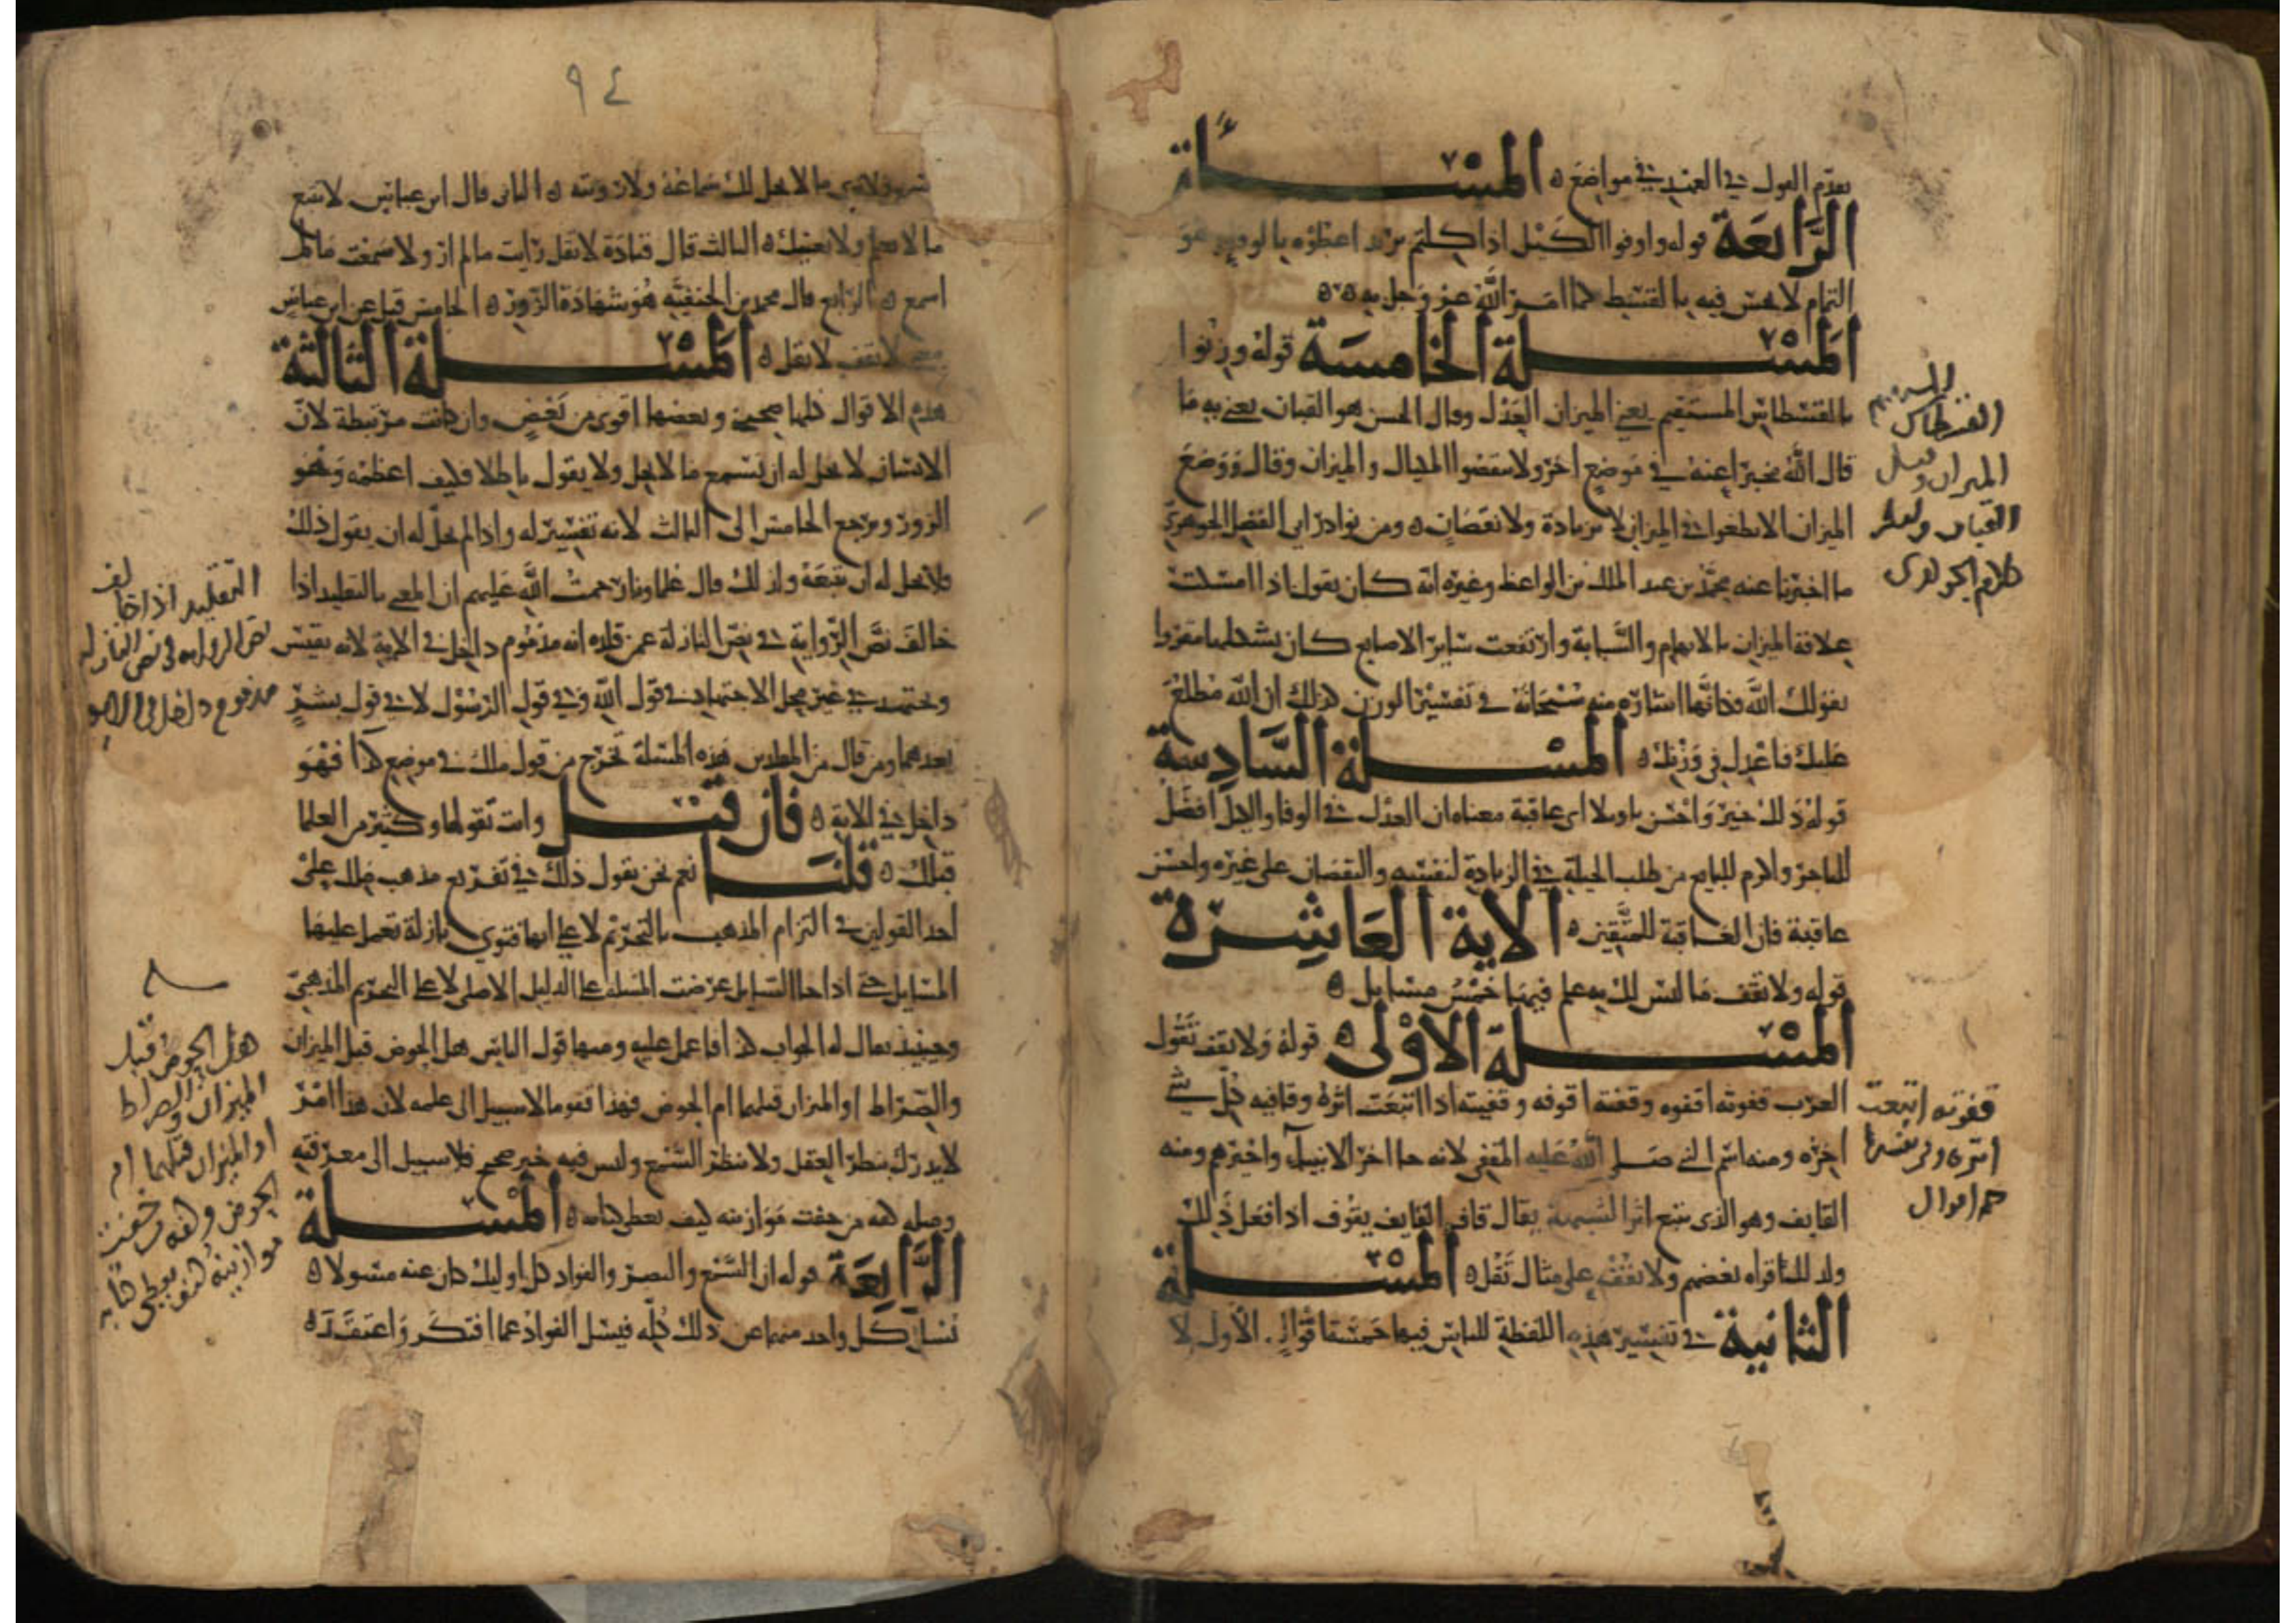 تقدم القول في العهد في مواضع ه المسئلة
الرابعة قوله واوفوا الكيل اذا كلتم يريد اعطوه بالوفا وهو
التمام لا بخس فيه بالقسط كما امر الله عز وجل به ه ه
المسئلة الخامسة قوله وزنوا
بالقسطاس المستقيم يعني الميزان العدل وقال الحسن هو القبان يعني به ما
قال الله مخبرا عنه في موضع اخر ولا تنقصوا المكيال والميزان وقال ووضع
الميزان الا تطغوا في الميزان لا بزيادة ولا نقصان ه ومن نوادر ابي الفضل الجوهري
ما اخبرنا عنه محمد بن عبد الملك الواعظ وغيره انه كان يقول اذا امسكت
علاقة الميزان بالابهام والسبابة وارتفعت سائر الاصابع كان شكلها مقروا
بقولك الله فكانها اشارة منه سبحانه في تفسير الوزن كذلك ان الله مطلع
عليك فاعدل في وزنك ه المسئلة السادسة
قوله ذلك خير واحسن تاويلا اي عاقبة معناه ان العدل في الوفا والكيل افضل
للتاجر واكرم للبايع من طلب الحيلة في الزيادة لنفسه والنقصان على غيره واحسن
عاقبة فان العاقبة للمتقين ه الاية العاشرة
قوله ولا تقف ما ليس لك به علم فيها خمس مسايل ه
المسئلة الاولى ه قوله ولا تقف تقول
العرب قفوته اقفوه وقفته اقوفه وقفيته اذا اتبعت اثره وقافيه كل شي
اخره ومنه اسم النبي صلى الله عليه المقفي لانه جا اخر الانبيا واخيرهم ومنه
القايف وهو الذي يتبع اثر الشبه يقال قاف القايف يقوف اذا فعل ذلك
ولذلك قراه بعضهم ولا تقف على مثال تقل ه المسئلة
الثانية في تفسير هذه اللفظة للناس فيها خمسة اقوال الاول لا
القسطاس
الميزان وقيل
القبان
كلام الجوهري
قفوته اتبعت
اثره
خمس اقوال
٩٤
تسمع ولا ترى ما لا يحل لك سماعه ولا رويته ه الثاني قال ابن عباس لا تتبع
ما لا تعلم ولا يعنيك ه الثالث قال قتادة لا تقل رايت ما لم ار ولا سمعت ما لم
اسمع ه الرابع قال محمد بن الحنفيه هو شهادة الزور ه الخامس قيل عن ابن عباس
معنى لا تقف لا تقل ه المسئلة الثالثة
هذه الاقوال كلها صحيحة وبعضها اقوى من بعض وان كانت مرتبطة لان
الانسان لا يحل له ان يسمع ما لا يحل ولا يقول باطلا فكيف اعظمه وهو
الزور ويرجع الخامس الى الثالث لانه تفسير له واذا لم يحل له ان يقول ذلك
فلا يحل له ان يتبعه ولذلك قال علماونا رحمت الله عليهم ان المفتي بالتقليد اذا
خالف نص الرواية في نص النازلة عمن قلده انه مذموم داخل في الاية لانه يقيس
ويجتهد في غير محل الاجتهاد في قول الله وفي قول الرسول لا في قول بشر
بعدهما ومن قال من المقلدين هذه المسئلة تخرج من قول ملك في موضع كذا فهو
داخل في الاية ه فان قيل وانت تقولها وكثير من العلما
قبلك ه قلنا نعم نحن نقول ذلك في تفريع مذهب ملك على
احد القولين في التزام المذهب بالتخريج لا على انها فتوى نازلة تعمل عليها
المسايل حتى اذا جا السايل عرضت المسئلة على الدليل الاصلي لا على التخريج المذهبي
وحينئذ يقال له الجواب كذا فاعمل عليه ومنها قول الناس هل الحوض قبل الميزان
والصراط او الميزان قبلهما ام الحوض فهذا قفو ما لا سبيل الى علمه لان هذا امر
لا يدرك بنظر العقل ولا بنظر السمع وليس فيه خبر صحيح فلا سبيل الى معرفته
ومثله كفه من خفت موازينه كيف يعطى كتابه ه المسئلة
الرابعة قوله ان السمع والبصر والفواد كل اوليك كان عنه مسولا ه
يسال كل واحد منهما عن ذلك كله فيسل الفواد عما افتكر واعتقد ه
التقليد اذا خالف
نص الرواية في نص النازلة
مذموم داخل في الاية
هل الحوض قبل
الميزان والصراط
او الميزان قبلهما ام
الحوض وكفه من خفت
موازينه كيف يعطى كتابه